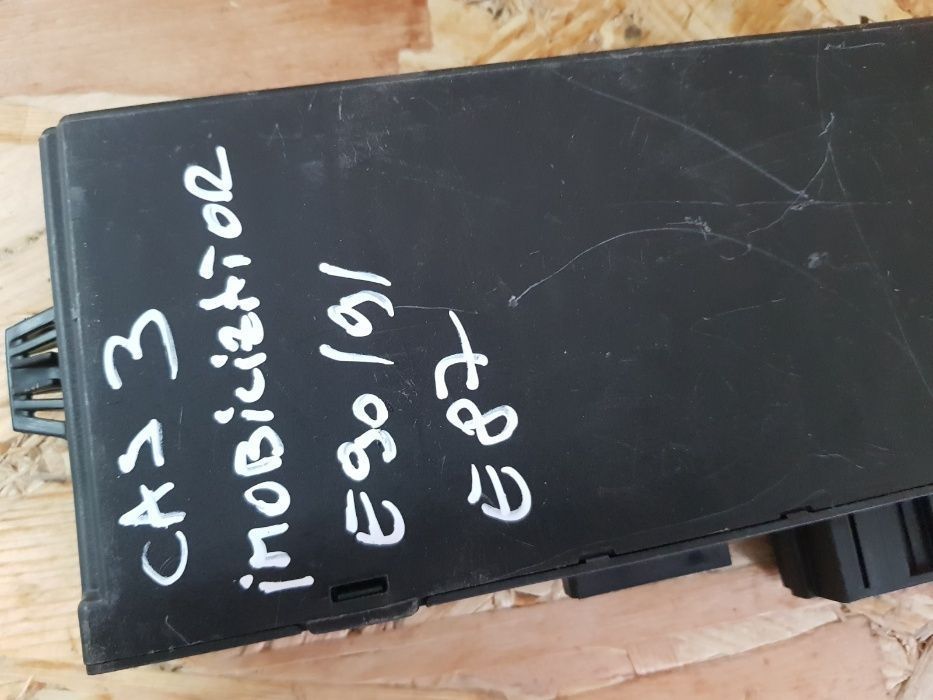 CAS 3
iMOBiLiZATOR
E90/91
E87